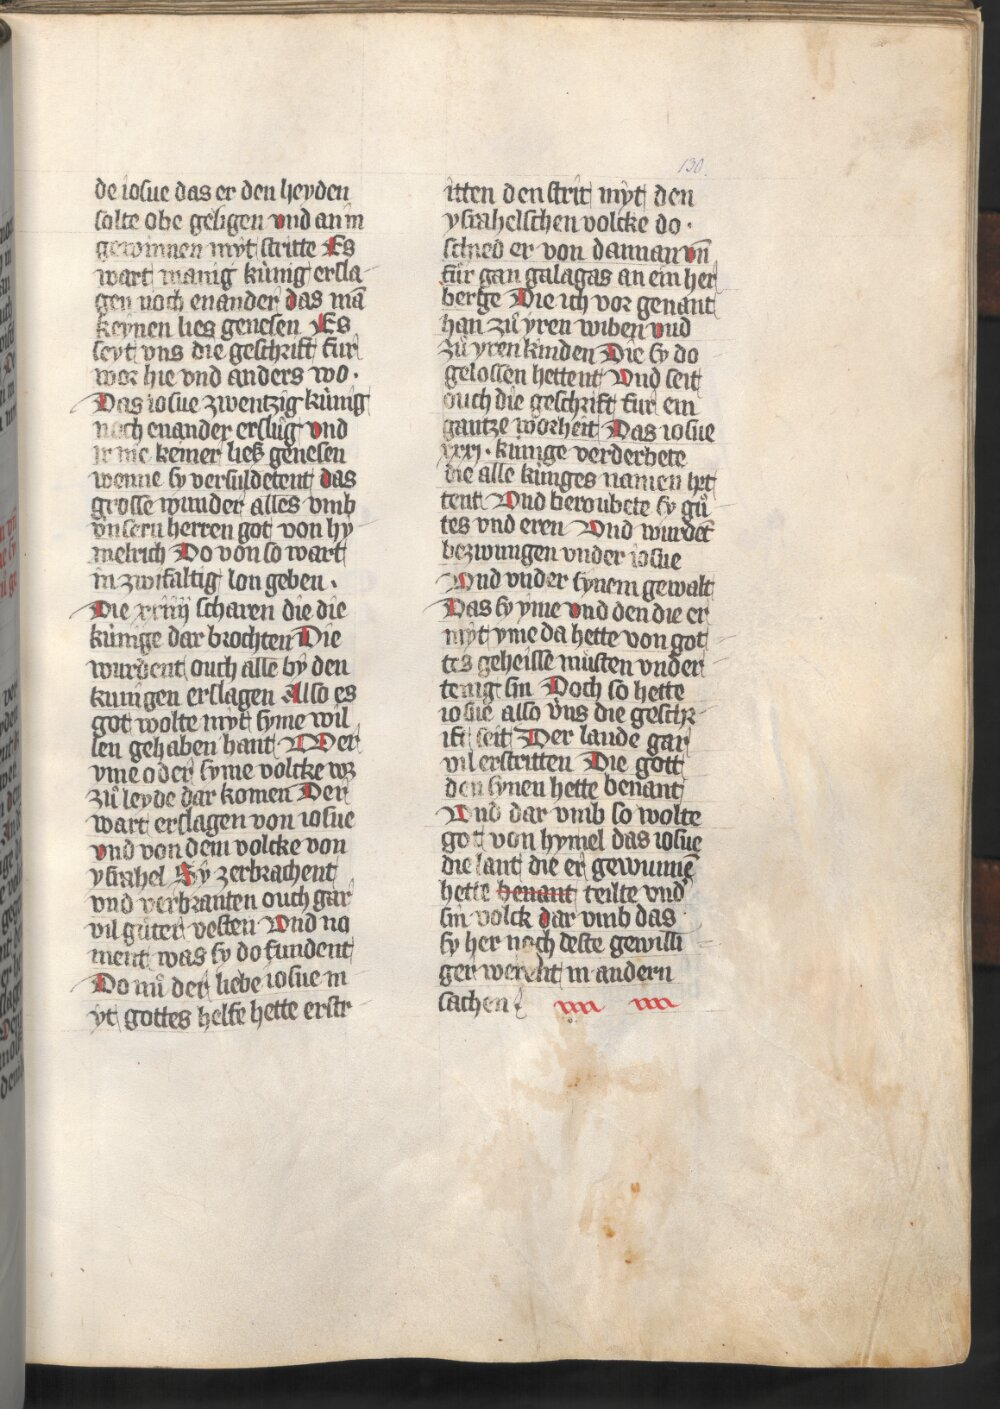 130.
de iosue das er den heyden
solte obe geligen vnd an im
gewinnen myt stritte Es
wart manig kúnig ersla-
gen noch enander das mā
keynen lies genesen Es
seyt vns die geschrift fur
wor hie vnd anders wo.
Das iosue zwentzig kúnig
noch enander erslůg vnd
ir nie keiner ließ genesen
wenne sy versuldetent das
grosse wunder alles vmb
vnsern herren got von hy
melrich Do von so wart
in zwifaltig lon geben.
Die xxiiij scharen die die
kúnige dar brochten Die
wurdent ouch alle by den
kunigen erslagen Also es
got wolte myt syme wil
len gehaben hant Wer
yme oder syme volcke wz
zů leyde dar komen Der
wart erslagen von iosue
vnd von dem volcke von
ysrahel Sy zerbrachent
vnd verbranten ouch gar
vil gůter vesten Vnd na
ment was sy do fundent
Do nů der liebe iosue m
yt gottes helfe hette erstr
itten den strit myt den
ysrahelschen volcke do.
schied er von dannan vn̄
fúr gan galagas an ein her
berge Die ich vor genant
han zů yren wiben vnd
zů yren kinden Die sy do
gelossen hettent Vnd seit
ouch die geschrift fur ein
gantze worheit Das iosue
xxxi. kúnige verderbete
die alle kúniges namen het
tent Vnd beroubete sy gů
tes vnd eren Vnd wurdēt
bezwungen vnder iosue
Vnd vnder synem gewalt
Das sy yme vnd den die er
myt yme da hette von got
tes geheisse músten vnder
tenig sin Doch so hette
iosue also vns die geschr
ift seit Der lande gar
vil erstritten Die gott
den synen hette benant
Vnd dar vmb so wolte
got von hymel das iosue
die lant die er gewunnē
hette benant teilte vnd
sin volck dar vmb das
sy her noch deste gewilli
ger werent in andern
sachen